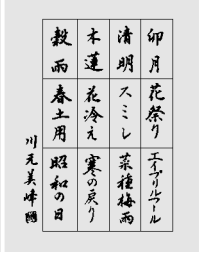 卯月
花祭り
エイプリルフール
清明
スミレ
菜種梅雨
木蓮
花冷え
寒の戻り
穀雨
春土用
昭和の日
川元美峰